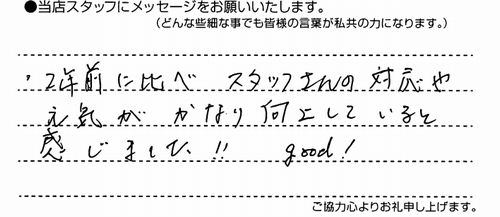 ●当店スタッフにメッセージをお願いいたします。
（どんな些細な事でも皆様の言葉が私共の力になります。）
・2年前に比べ スタッフさんの対応や
元気が かなり向上していると
感じました!! good!
ご協力心よりお礼申し上げます。